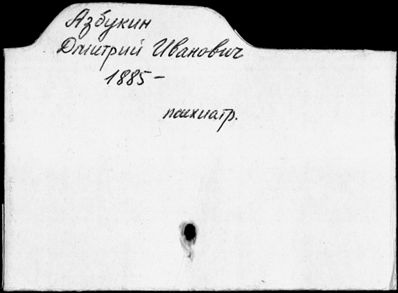 Азбукин
Дмитрий Иванович
1885 –
психиатр.